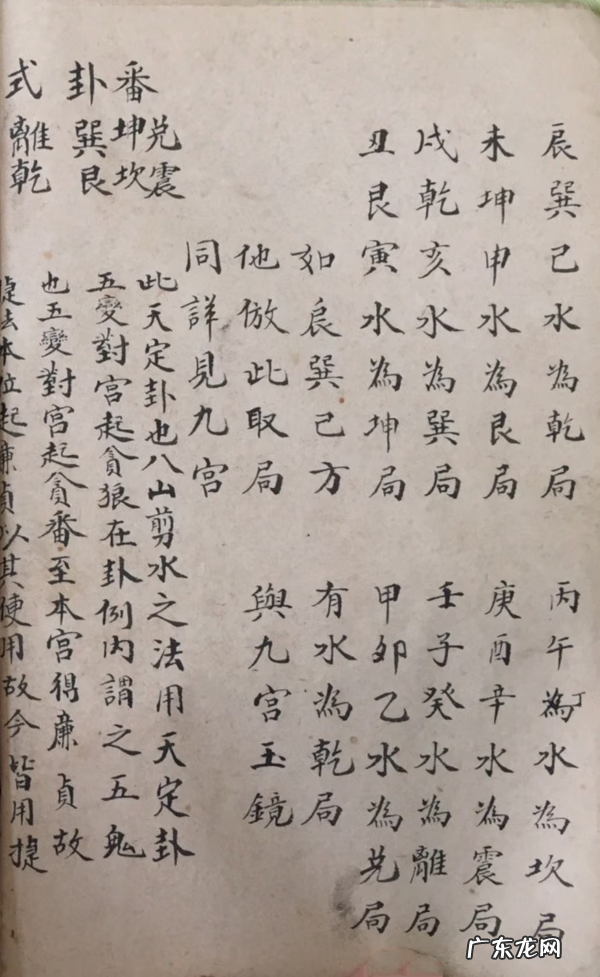 辰巽巳水為乾局　丙午為丁水為坎局
未坤申水為艮局　庚酉辛水為震局
戌乾亥水為巽局　壬子癸水為離局
丑艮寅水為坤局　甲卯乙水為兌局
如辰巽巳方　有水為乾局
他倣此取局　與九宮玉鏡
同詳見九宮
番　坤坎　兌震
卦　巽艮
式　離乾
此天定卦也八山剪水之法用天定卦
五變對宮起貪狼在卦例內謂之五鬼
也五變對宮起貪番至本宮得廉貞故
捷法本位起廉貞以其便用故今皆用捷
广东龙网